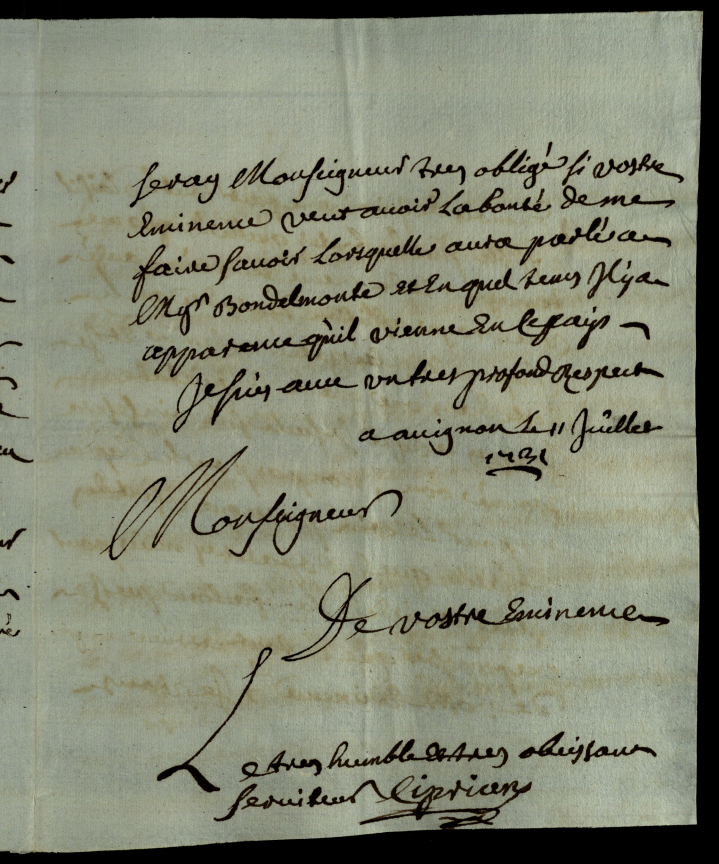 seray Monseigneur tres obligé si vostre
Eminence veut avoir la bonté de me
faire savoir lorsquelle aura parlé a
Mgr Bondelmonte et En quel tems Jl y a
apparence qu'il vienne En ce pays
Je suis avec un tres profond Respect
a avignon le 11 Juillet
1731
Monseigneur
De vostre Eminence
Le tres humble et tres obeissant
serviteur Ciprian